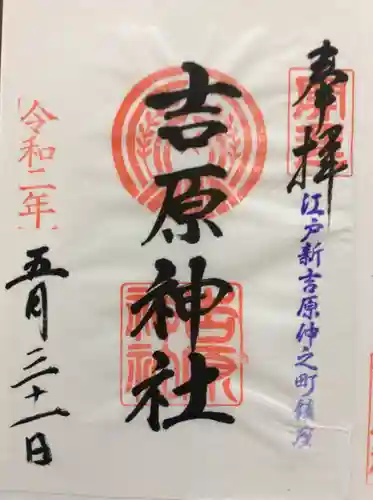 奉拝
江戸新吉原仲之町鎮座
吉原神社
令和二年
五月三十一日